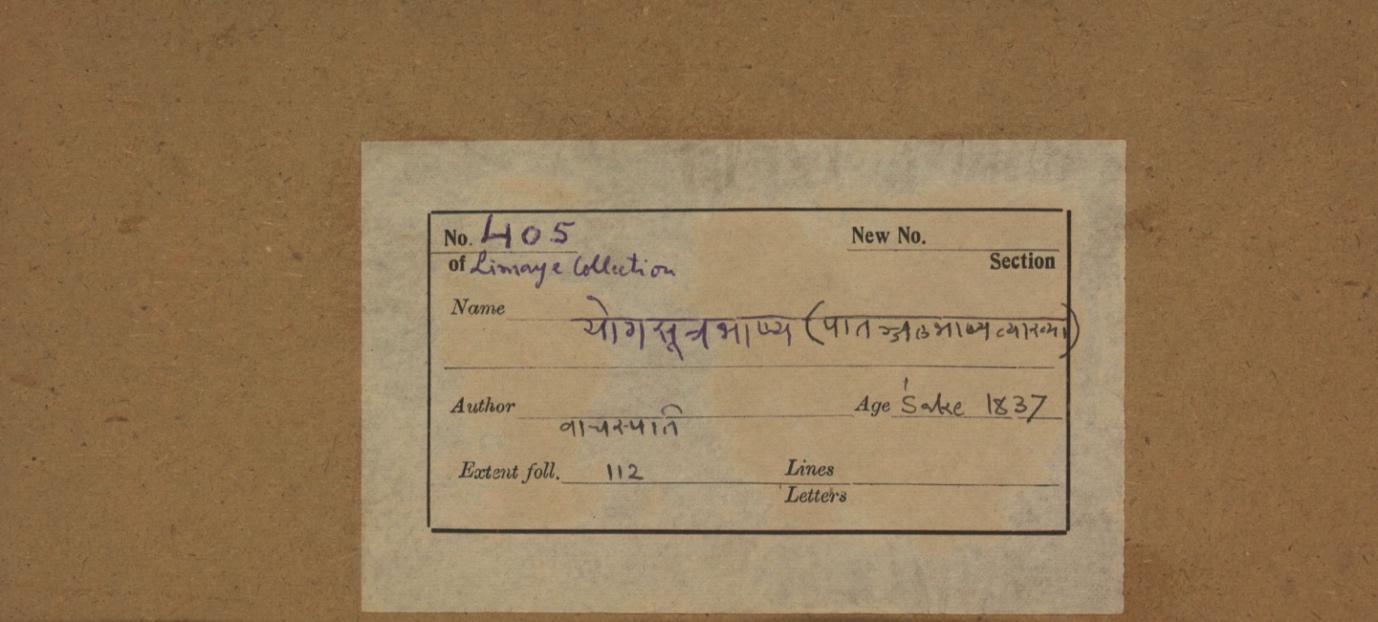 No. 405 New No.
of Limaye Collection Section
Name योगसूत्रभाष्य (पातञ्जलभाष्यव्याख्या)
Author वाचस्पति Age Śake 1837
Extent foll. 112 Lines
Letters